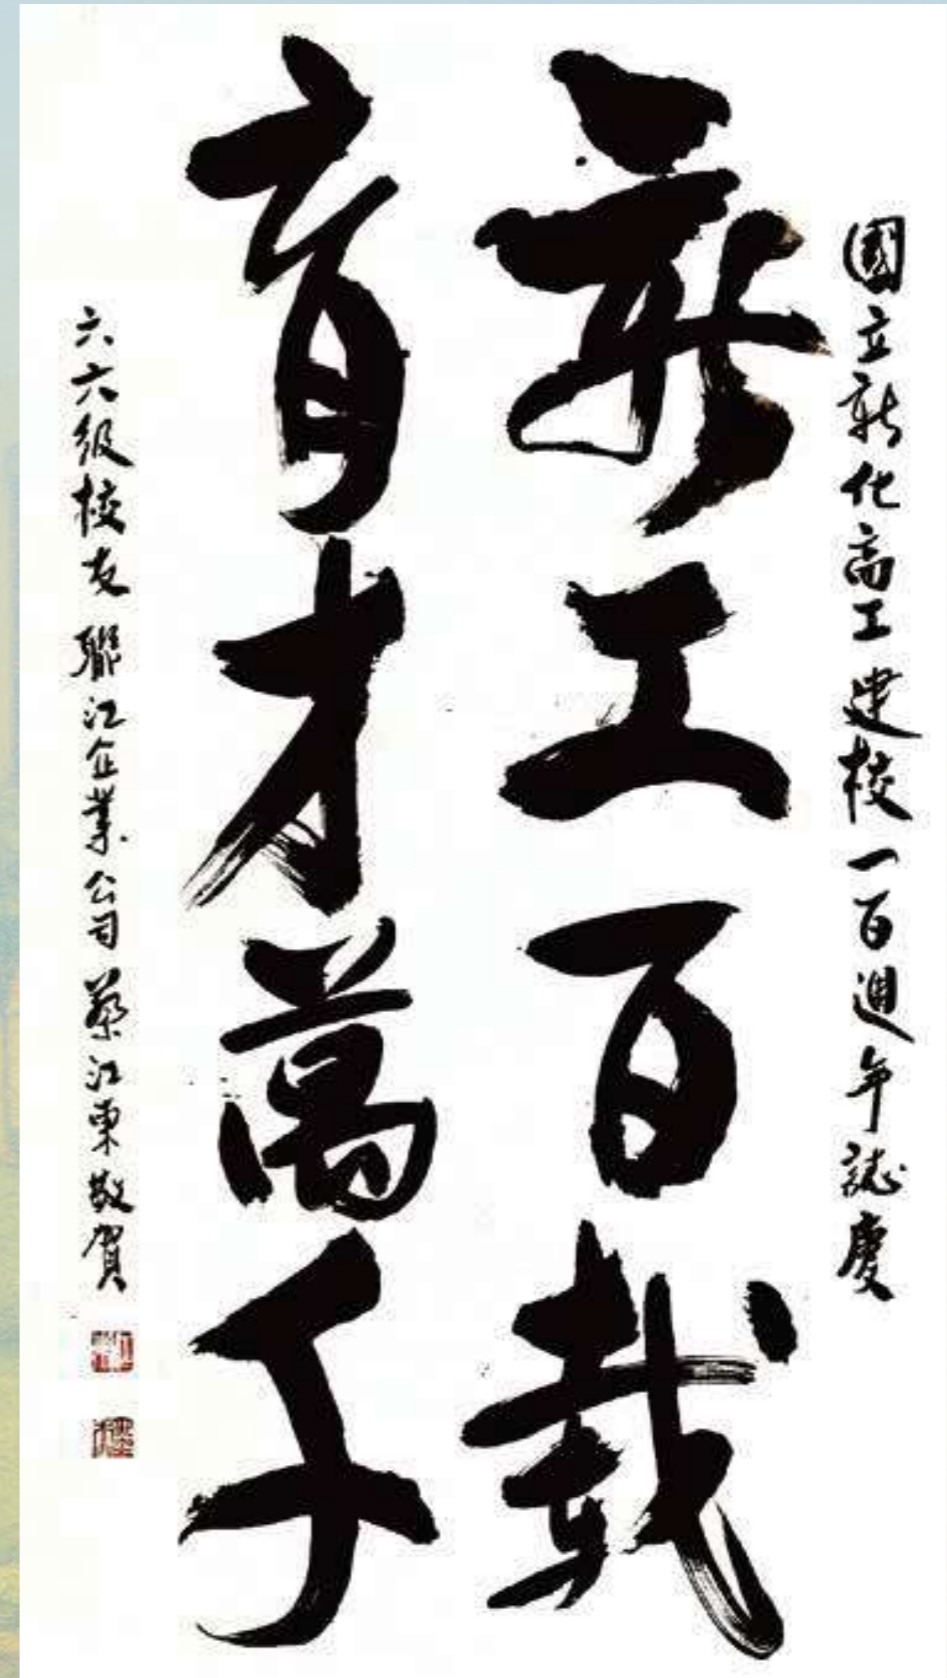 國立新化高工建校一百週年誌慶
新工百載
育才萬千
六六級校友 聯江企業公司 蔡江東敬賀